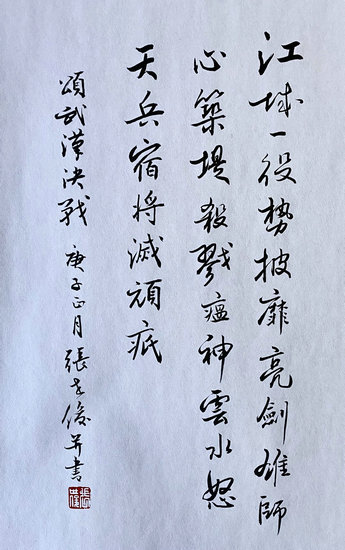 江城一役势披靡亮劍雄師
心築堤殺戮瘟神雲水怒
天兵宿将滅頑
頌武漢决戰 庚子正月 張俊并書